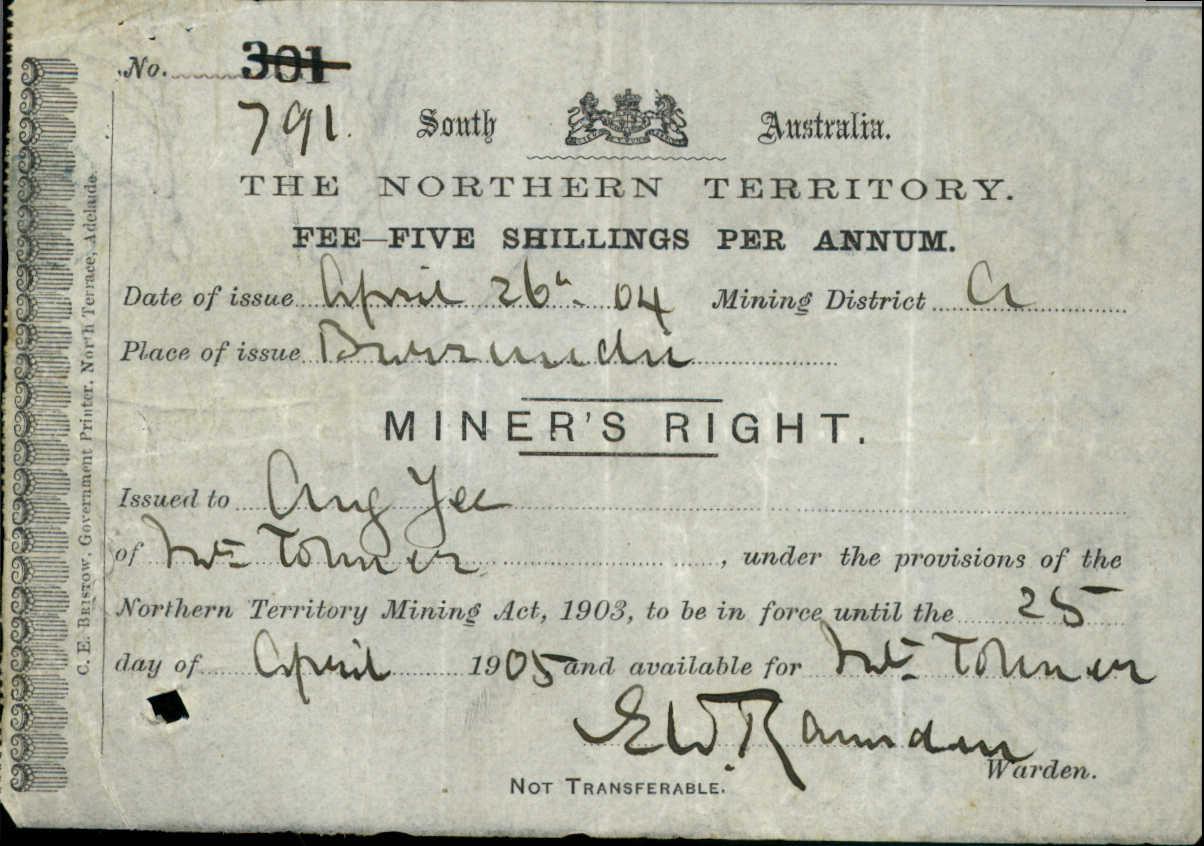 No. 301
791.
South Australia.
THE NORTHERN TERRITORY.
FEE—FIVE SHILLINGS PER ANNUM.
Date of issue April 26th 04 Mining District A
Place of issue Burrundie
MINER'S RIGHT.
Issued to Ang Yee
of Mt Tolmer, under the provisions of the
Northern Territory Mining Act, 1903, to be in force until the 25
day of April 1905 and available for Mt Tolmer
E W. Ramsden
Warden.
NOT TRANSFERABLE.
C. E. BRISTOW, Government Printer, North Terrace, Adelaide.